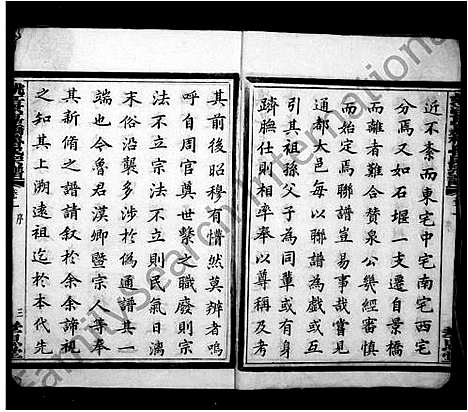 近不紊而東宅中宅南宅西宅
分焉又如石堰一支遷自景橋
而離者難合贊泉公幾經審慎
而始定焉聯譜豈易事哉嘗見
通都大邑每以聯譜為戲或互
引其祖孫父子為同輩或有以
躋膴仕則相率奉以尊稱及考
其前後昭穆有懵然莫辨者嗚
呼自周官奠世繫之職廢則宗
法不立宗法不立則民氣日漓
末俗沿襲多涉於偽通譜其一
端也令魯君漢卿暨宗人等奉
其新脩之譜請叙於余余諦視
之知其上溯遠祖迄於本代先
卷一 序
三
FamilySearch International